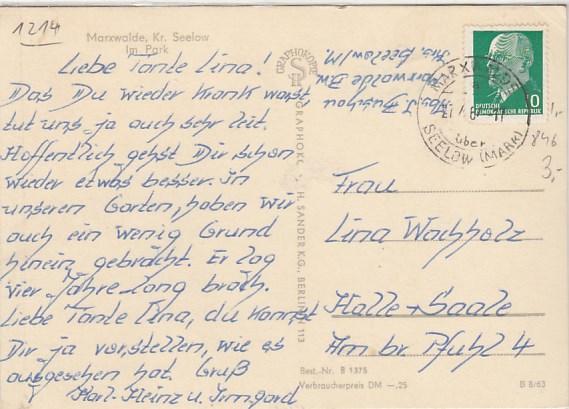 1214
Marxwalde, Kr. Seelow
Im Park
Liebe Tante Lina!
Das Du wieder krank warst
tut uns ja auch sehr leit.
Hoffentlich gehst Dir schon
wieder etwas besser. In
unseren Garten, haben wir
auch ein wenig Grund
hinein gebracht. Er lag
vier Jahre lang brach.
Liebe Tante Lina, du kannst
Dir ja vorstellen, wie es
ausgesehen hat. Gruß
Karl-Heinz u. Irmgard
GRAPHOKOPIE
H. SANDER K.G., BERLIN 113
Marxwalde
Krs. Seelow/M.
MARXWALDE
über
SEELOW (MARK)
DEUTSCHE
DEMOKRATISCHE REPUBLIK
846
3,-
Frau
Lina Wachholz
Halle + Saale
Am br. Pfuhl 4
Best.-Nr. B 1375
Verbraucherpreis DM -,25
B 8/63